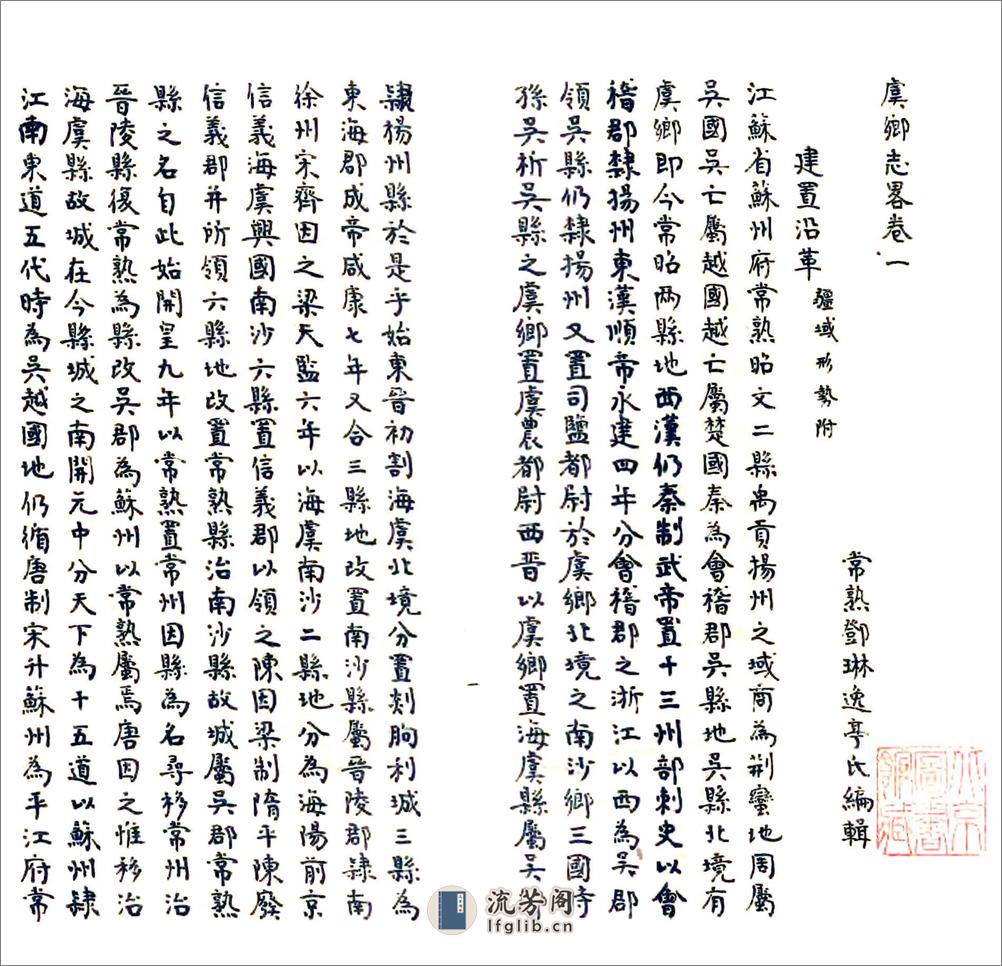 虞鄉志畧卷一
常熟鄧琳逸亭氏編輯
建置沿革 疆域形勢附
江蘇省蘇州府常熟昭文二縣禹貢揚州之域商為荆蠻地周屬
吳國吳亡屬越國越亡屬楚國秦為會稽郡吳縣地吳縣北境有
虞鄉即今常昭两縣地西漢仍秦制武帝置十三州部刺史以會
稽郡隸揚州東漢順帝永建四年分會稽郡之浙江以西為吳郡
領吳縣仍隸揚州又置司鹽都尉於虞鄉北境之南沙鄉三國時
孫吳析吳縣之虞鄉置虞農都尉西晉以虞鄉置海虞縣屬吳郡
隸揚州縣於是乎始東晉初割海虞北境分置郯朐利城三縣為
東海郡成帝咸康七年又合三縣地改置南沙縣屬晉陵郡隸南
徐州宋齊因之梁天監六年以海虞南沙二縣地分為海陽前京
信義海虞興國南沙六縣置信義郡以領之陳因梁制隋平陳廢
信義郡并所領六縣地改置常熟縣治南沙縣故城屬吳郡常熟
縣之名自此始開皇九年以常熟置常州因縣為名尋移常州治
晉陵縣復常熟為縣改吳郡為蘇州以常熟屬焉唐因之惟移治
海虞縣故城在今縣城之南開元中分天下為十五道以蘇州隸
江南東道五代時為吳越國地仍循唐制宋升蘇州為平江府常
一
北京
圖書
館藏
流芳阁
lfglib.cn